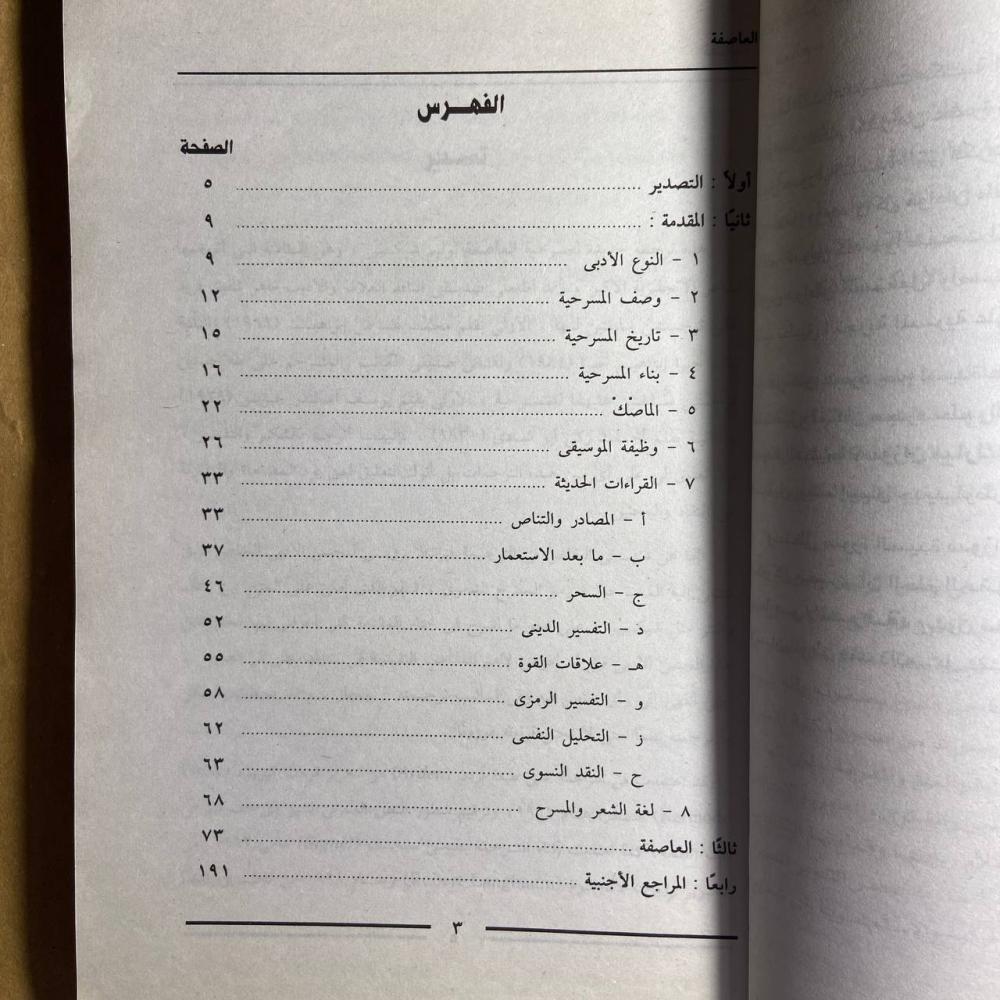 العاصفة
الفهـــرس
الصفحة
أولاً : التصدير ........ ٥
ثانيًا : المقدمة : ........ ٩
١ - النوع الأدبى ........ ٩
٢ - وصف المسرحية ........ ١٢
٣ - تاريخ المسرحية ........ ١٥
٤ - بناء المسرحية ........ ١٦
٥ - الماصْكْ ........ ٢٢
٦ - وظيفة الموسيقى ........ ٢٦
٧ - القراءات الحديثة ........ ٣٣
أ - المصادر والتناص ........ ٣٣
ب - ما بعد الاستعمار ........ ٣٧
ج - السحر ........ ٤٦
د - التفسير الدينى ........ ٥٢
هـ - علاقات القوة ........ ٥٥
و - التفسير الرمزى ........ ٥٨
ز - التحليل النفسى ........ ٦٢
ح - النقد النسوى ........ ٦٣
٨ - لغة الشعر والمسرح ........ ٦٨
ثالثًا : العاصفة ........ ٧٣
رابعًا : المراجع الأجنبية ........ ١٩١
٣